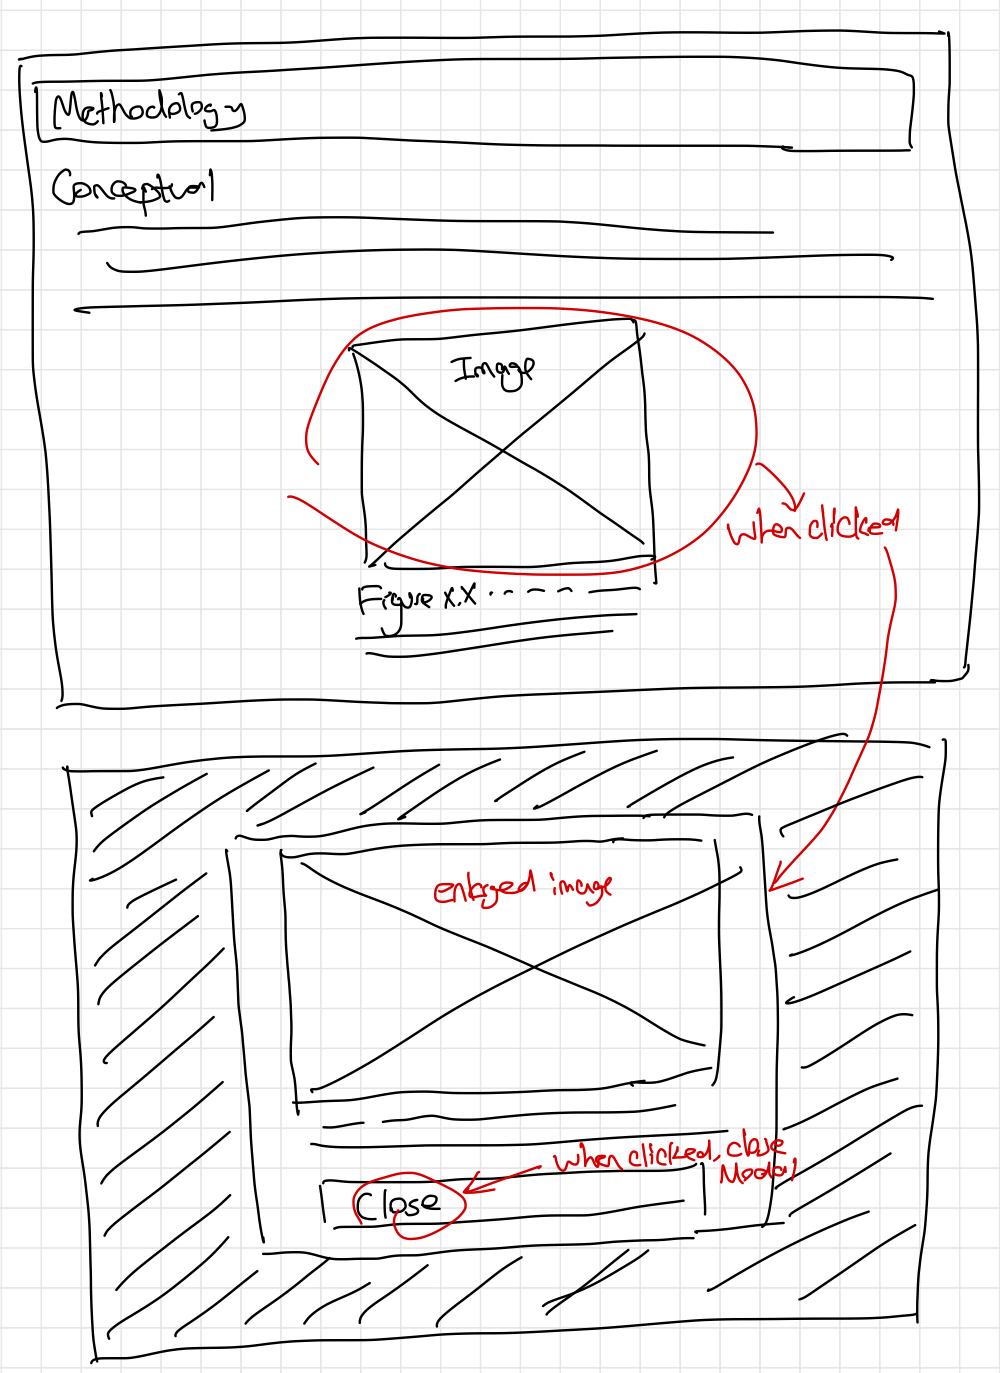 Methodology
Conceptual
Image
when clicked
Figure X.X
enlarged image
when clicked, close
Modal
Close